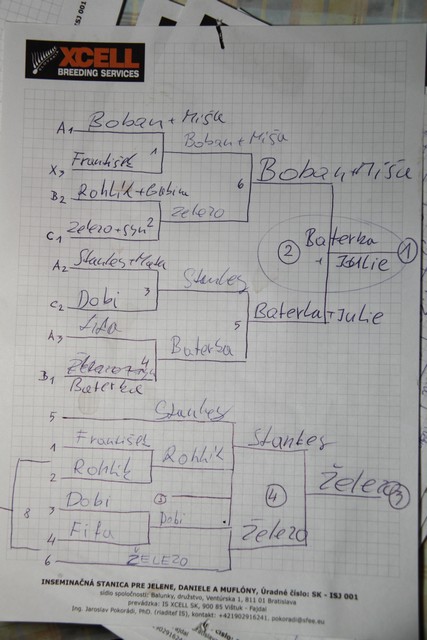 XCELL
BREEDING SERVICES
A1 Boban + Miša
1 Boban + Miša
X3 František
6 Boban + Miša
B2 Rohlík +
Železo
C1 Železo + syn 2
2 Baterka + Julie 1
A2 Stankes +
3 Stankes
C2 Dobi
5 Baterka + Julie
A3 Fifa
4 Baterka
B1
Baterka
5 Stankes
1 František
Stankes
Rohlík
2 Rohlík
Železo 3
3 Dobi
4
8
Dobi
4 Fifa
Železo
6 ŽELEZO
INSEMINAČNÁ STANICA PRE JELENE, DANIELE A MUFLÓNY, Úradné číslo: SK - ISJ 001
sídlo spoločnosti: Balunky, družstvo, Ventúrska 1, 811 01 Bratislava
prevádzka: IS XCELL SK, 900 85 Vištuk - Fajdal
Ing. Jaroslav Pokorádi, PhD. (riaditeľ IS), kontakt: +421902916241, pokoradi@vfse.eu